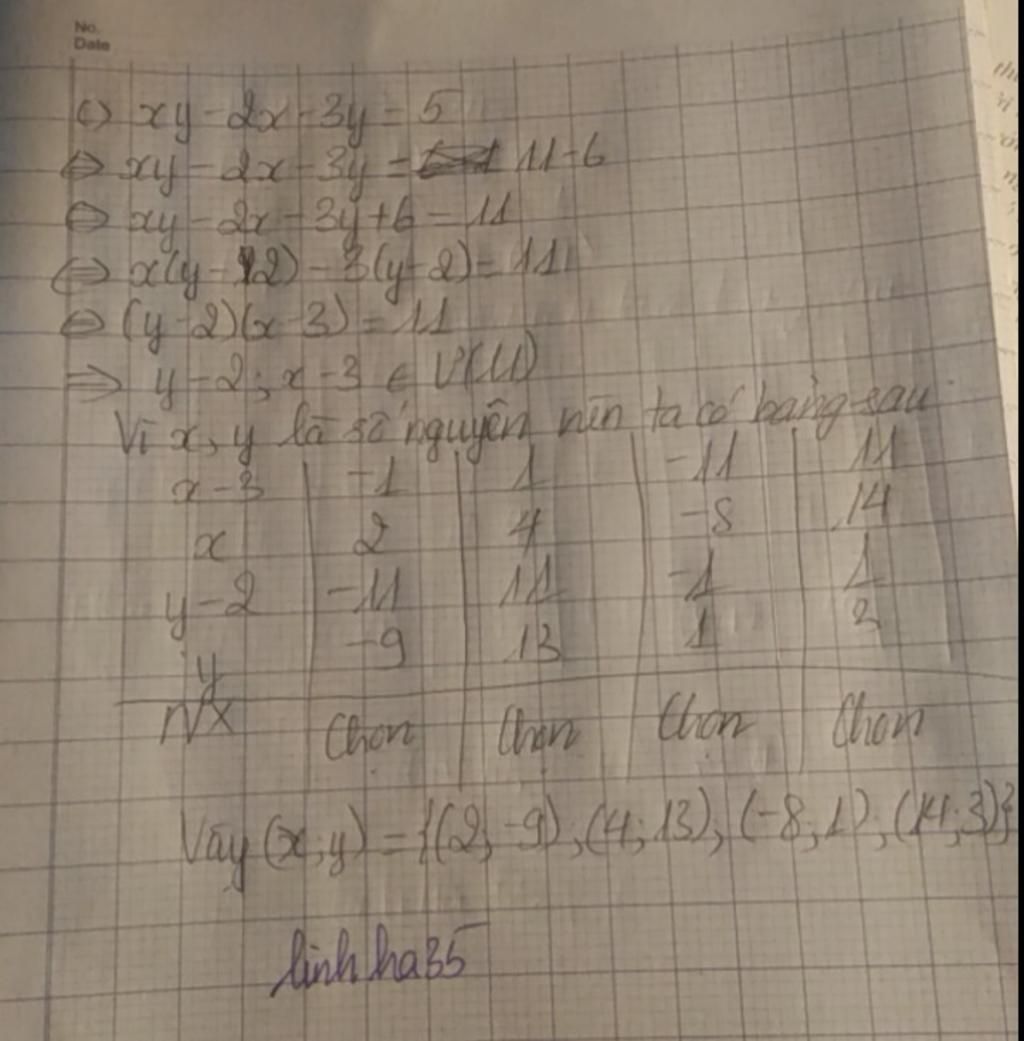 No.
Date
c) xy - 2x - 3y = 5
⇔ xy - 2x - 3y = 11 - 6
⇔ xy - 2x - 3y + 6 = 11
⇔ x(y - 2) - 3(y - 2) = 11
⇔ (y - 2)(x - 3) = 11
⇒ y - 2; x - 3 ∈ Ư(11)
Vì x, y là số nguyên nên ta có bảng sau
x - 3 | -1 | 1 | -11 | 11
x | 2 | 4 | -8 | 14
y - 2 | -11 | 11 | -1 | 1
y | -9 | 13 | 1 | 3
NX | Chọn | Chọn | Chọn | Chọn
Vậy (x; y) = {(2; -9); (4; 13); (-8; 1); (14; 3)}
linhha35